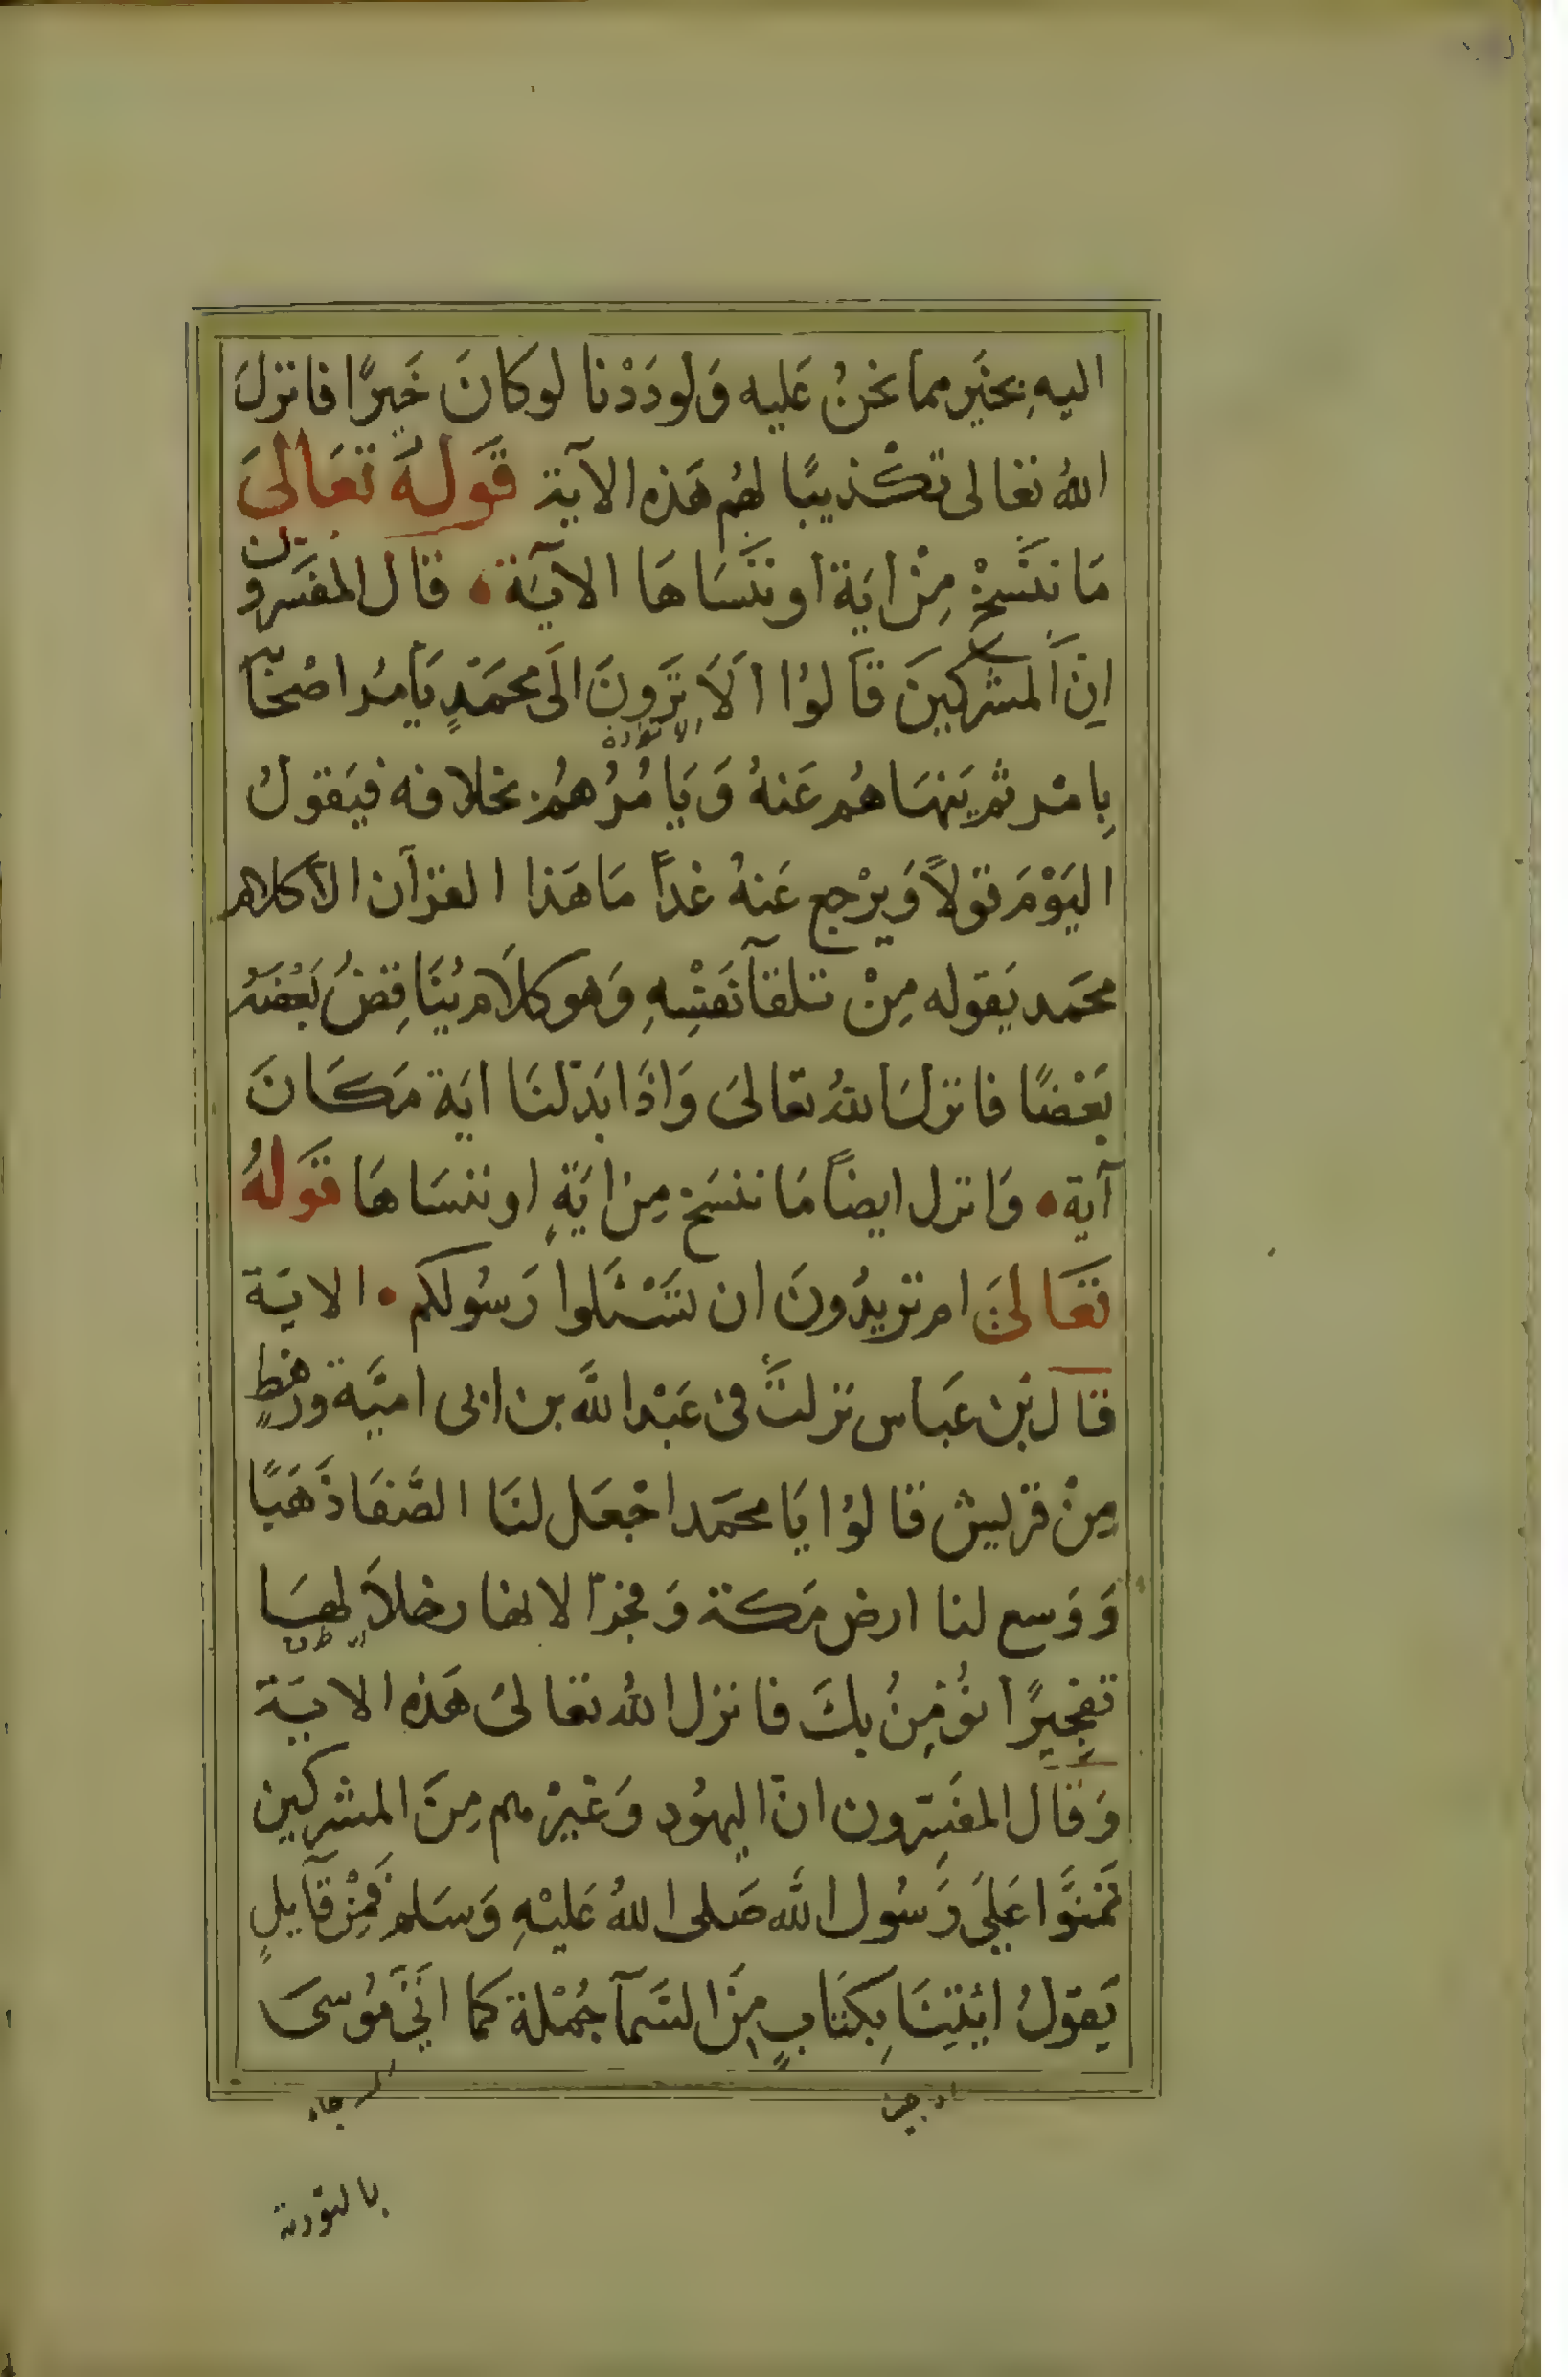 اليهِ بخَيرٍ مما نحنُ عَليه وَلوددْنا لوكانَ خَيرًا فانزلَ
اللهُ تعالى تكْذيبًا لهُم هَذه الآية قَولهُ تَعَالىَ
مَا ننَسَخْ مِنْ ايَة او ننَسَاهَا الآيَة قال المفسرون
اِنَ المشركينَ قَالوُا اَلاَ تَرَونَ الَى محمَدٍ يَأمرُ اصْحَابَهُ
بِامرٍ ثم يَنهَاهُم عَنهُ وَيَامُرُهُم بخلافه فيَقولُ
اليَوْمَ قولاً وَيرْجع عَنهُ غداً مَا هَذا القرآن الاّ كلام
محمَد يَقوله مِنْ تلقآ نَفسِهِ وَهو كلاَم يُنَاقِضُ بَعْضَهُ
بَعْضًا فانزلَ اللهُ تعالىَ وَاذَا بَدّلنَا ايَة مَكَانَ
آية وَانزل ايضاً مَا ننسَخ مِن ايَةٍ او ننسَاهَا قَولهُ
تَعَالىَ ام تريدُونَ ان تَسْئَلوا رَسُولكم الايَة
قال بن عَباس نزلتْ فى عَبْد اللَّه بن ابى اميَّة ورَهطٍ
مِنْ قريش قالوُا يَا محمَد اجْعَل لنَا الصَّفَا ذَهَبًا
وَوَسع لنا ارض مَكة وَفجّر الانهار خلاَلهَا
تفجيرًا نؤمِنُ بكَ فانزل اللهُ تعالىَ هَذه الايَة
وَقال المفسّرون انّ اليهُود وَغيرْهم مِنَ المشركين
تمَنَّوا عَلىَ رَسُول اللَّه صَلى اللهُ عَليْهِ وَسَلم فَمِنْ قآيلٍ
يَقولُ ايْتِنَا بِكتَابٍ مِنَ السَّمآ جُمْلة كما اتَى مُوسىَ
بالتورية